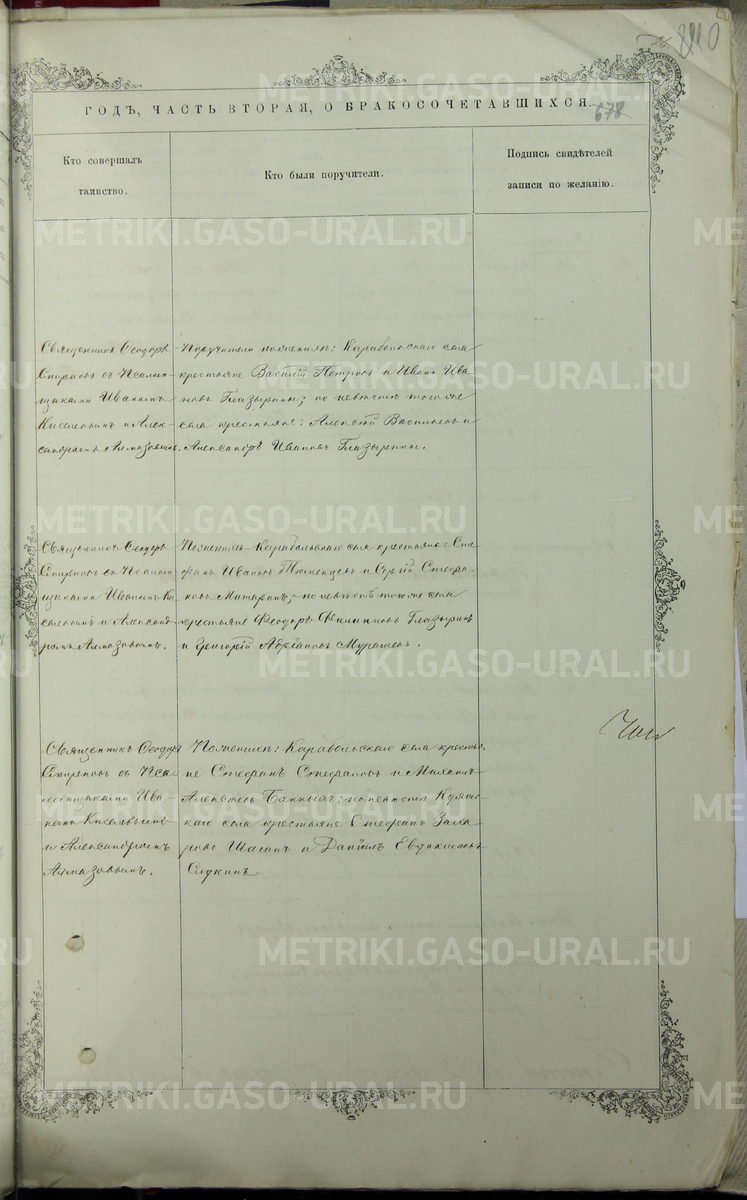 840
ГОДЪ, ЧАСТЬ ВТОРАЯ, О БРАКОСОЧЕТАВШИХСЯ.
678
Кто совершалъ
таинство.
Кто были поручители.
Подпись свидѣтелей
записи по желанію.
Священникъ Ѳеодоръ
Спиреновъ съ Псалом-
щиками Иваномъ
Киселевымъ и Алек-
сандромъ Алмазовымъ.
Поручители по женихѣ: Карабольскаго села
крестьяне Василій Петровъ и Иванъ Ива-
новъ Глазырины; по невѣстѣ того же
села крестьяне: Алексѣй Васильевъ и
Александръ Ивановъ Глазырины.
Священникъ Ѳеодоръ
Спиреновъ съ Псалом-
щиками Иваномъ Ки-
селевымъ и Александ-
ромъ Алмазовымъ.
По женихѣ Карабольскаго села крестьяне: Сте-
фанъ Ивановъ и Сергій Стефа-
новъ; по невѣстѣ того же села
крестьяне Ѳеодоръ Филипповъ Глазыринъ
и Григорій Мурашевъ.
Священникъ Ѳеодоръ
Спиреновъ съ Пса-
ломщиками Ива-
номъ Киселевымъ
и Александромъ
Алмазовымъ.
По женихѣ: Карабольскаго села крестья-
не Стефанъ Стефановъ и Михаилъ
Алексѣевъ; по невѣстѣ
села крестьяне Стефанъ Заха-
ровъ и Даніилъ Евдокимовъ
METRIKI.GASO-URAL.RU